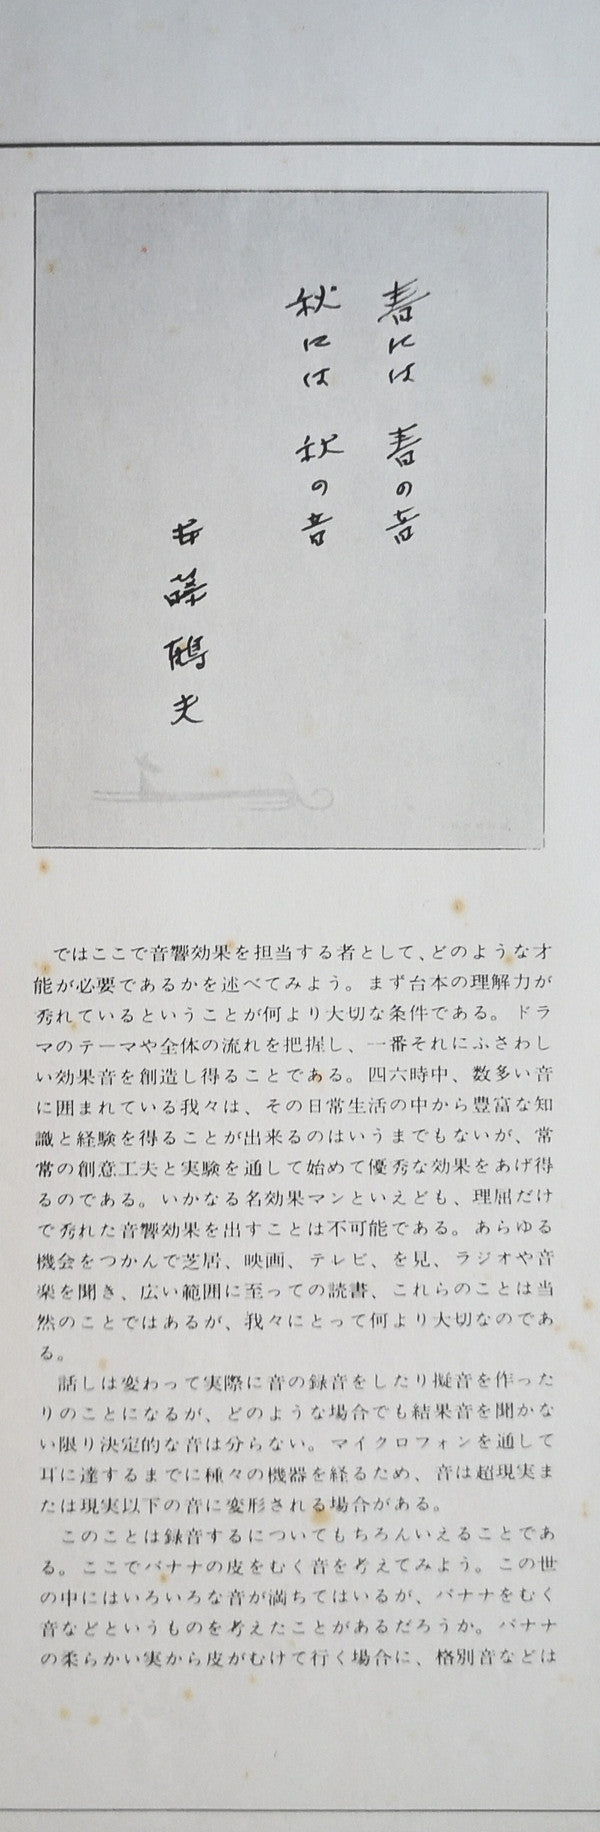 春には 春の音
秋には 秋の音
安藤鶴夫
ではここで音響効果を担当する者として、どのような才
能が必要であるかを述べてみよう。まず台本の理解力が
秀れているということが何より大切な条件である。ドラ
マのテーマや全体の流れを把握し、一番それにふさわし
い効果音を創造し得ることである。四六時中、数多い音
に囲まれている我々は、その日常生活の中から豊富な知
識と経験を得ることが出来るのはいうまでもないが、常
常の創意工夫と実験を通して始めて優秀な効果をあげ得
るのである。いかなる名効果マンといえども、理屈だけ
で秀れた音響効果を出すことは不可能である。あらゆる
機会をつかんで芝居、映画、テレビ、を見、ラジオや音
楽を聞き、広い範囲に至っての読書、これらのことは当
然のことではあるが、我々にとって何より大切なのであ
る。
話しは変わって実際に音の録音をしたり擬音を作った
りのことになるが、どのような場合でも結果音を聞かな
い限り決定的な音は分らない。マイクロフォンを通して
耳に達するまでに種々の機器を経るため、音は超現実ま
たは現実以下の音に変形される場合がある。
このことは録音するについてもちろんいえることであ
る。ここでバナナの皮をむく音を考えてみよう。この世
の中にはいろいろな音が満ちてはいるが、バナナをむく
音などというものを考えたことがあるだろうか。バナナ
の柔らかい実から皮がむけて行く場合に、格別音などは